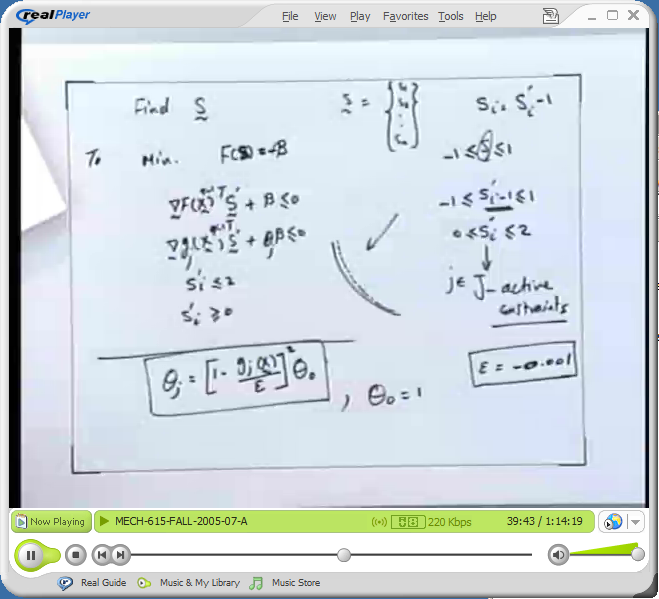 realPlayer
File View Play Favorites Tools Help
Find S
S = { }
Sᵢ = Sᵢ' - 1
To Min. F(S) = -β
-1 ≤ S ≤ 1
∇F(X)ᵀ S' + β ≤ 0
-1 ≤ Sᵢ' - 1 ≤ 1
∇gⱼ(X)ᵀ S' + θⱼβ ≤ 0
0 ≤ Sᵢ' ≤ 2
Sᵢ' ≤ 2
j ∈ J - active
constraints
Sᵢ' ≥ 0
θⱼ = [1 - gⱼ(X)/ε]² θ₀ , θ₀ = 1
ε = -0.001
Now Playing
MECH-615-FALL-2005-07-A
220 Kbps
39:43 / 1:14:19
Real Guide
Music & My Library
Music Store